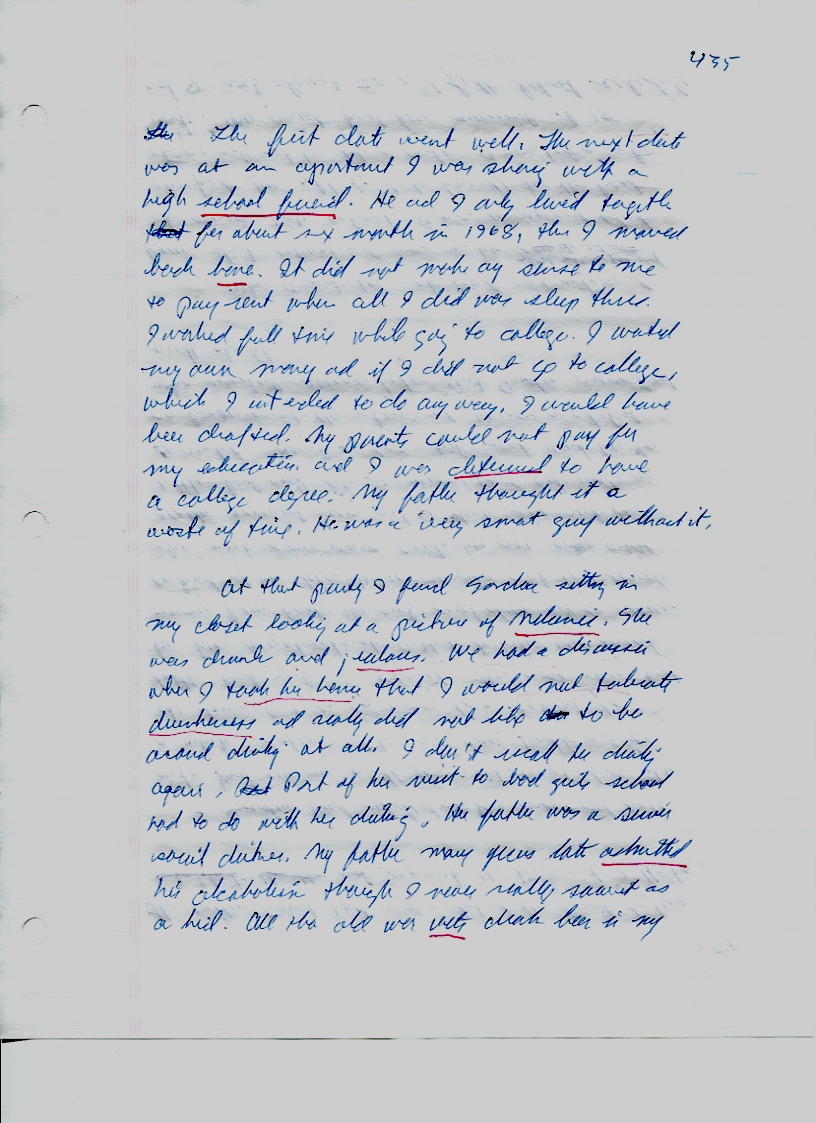 435
The first date went well. The next date
was at an apartment I was sharing with a
high school friend. He and I only lived together
for about six month in 1968, then I moved
back home. It did not make any sense to me
to pay rent when all I did was sleep there.
I worked full time while going to college. I wanted
my own money and if I did not go to college,
which I intended to do anyway, I would have
been drafted. My parents could not pay for
my education and I was determined to have
a college degree. My father thought it a
waste of time. He was a very smart guy without it.
At that party I found sitting in
my closet looking at a picture of Melanie. She
was drunk and jealous. We had a discussion
when I took her home that I would not tolerate
drunkenness and really did not like to be
around drinking at all. I don't recall her drinking
again. Part of her visit to bad girls school
had to do with her drinking. Her father was a
drinker. My father many years later admitted
his alcoholism though I never really saw it as
a kid. All the old war vets drank beer in my